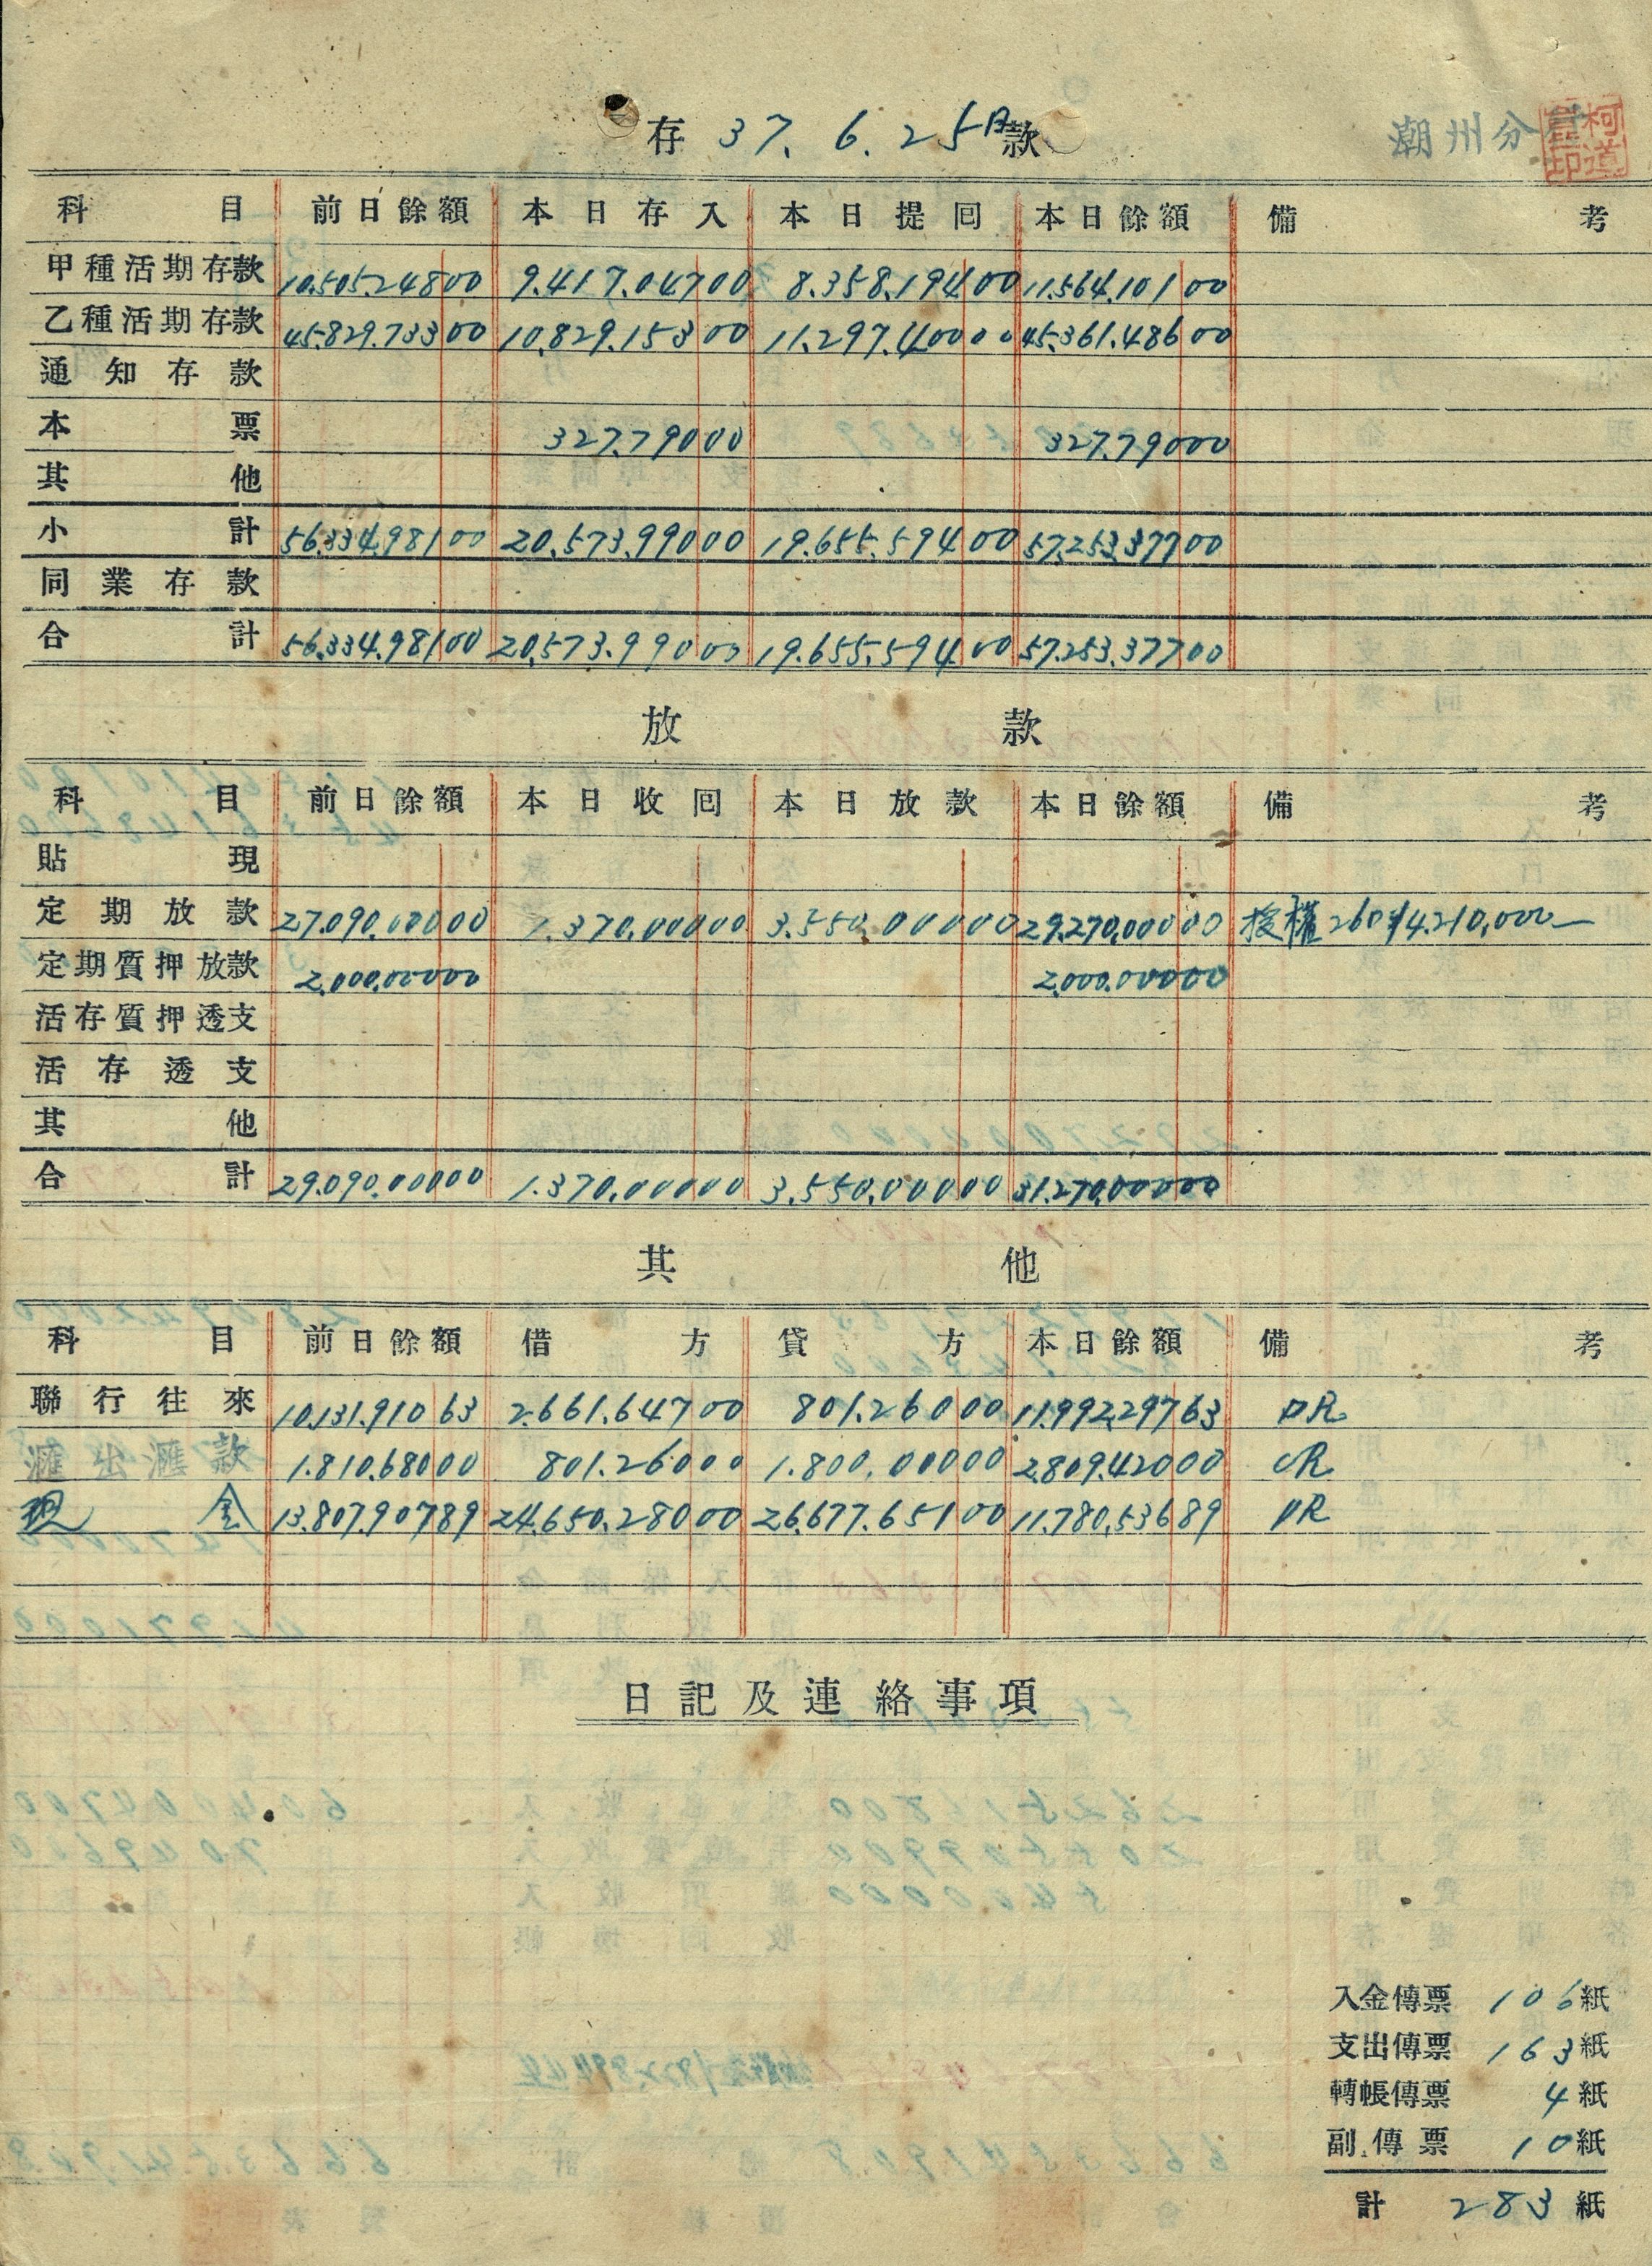 存 37. 6. 25日 款
潮州分
柯道
印
科目 前日餘額 本日存入 本日提回 本日餘額 備考
甲種活期存款 10.505.248 00 9.417.047 00 8.358.194 00 11.564.101 00
乙種活期存款 45.829.733 00 10.829.153 00 11.297.400 00 45.361.486 00
通知存款
本票 327.790 00 327.790 00
其他
小計 56.334.981 00 20.573.990 00 19.655.594 00 57.253.377 00
同業存款
合計 56.334.981 00 20.573.990 00 19.655.594 00 57.253.377 00
放款
科目 前日餘額 本日收回 本日放款 本日餘額 備考
貼現
定期放款 27.090.000 00 1.370.000 00 3.550.000 00 29.270.000 00 授權 260 ¥4.210,000—
定期質押放款 2.000.000 00 2.000.000 00
活存質押透支
活存透支
其他
合計 29.090.000 00 1.370.000 00 3.550.000 00 31.270.000 00
其他
科目 前日餘額 借方 貸方 本日餘額 備考
聯行往來 10.131.910 63 2.661.647 00 801.260 00 11.992.297 63 DR
滙出滙款 1.810.680 00 801.260 00 1.800.000 00 2.809.420 00 CR
現金 13.807.907 89 24.650.280 00 26.677.651 00 11.780.536 89 DR
日記及連絡事項
入金傳票 106 紙
支出傳票 163 紙
轉帳傳票 4 紙
副傳票 10 紙
計 283 紙